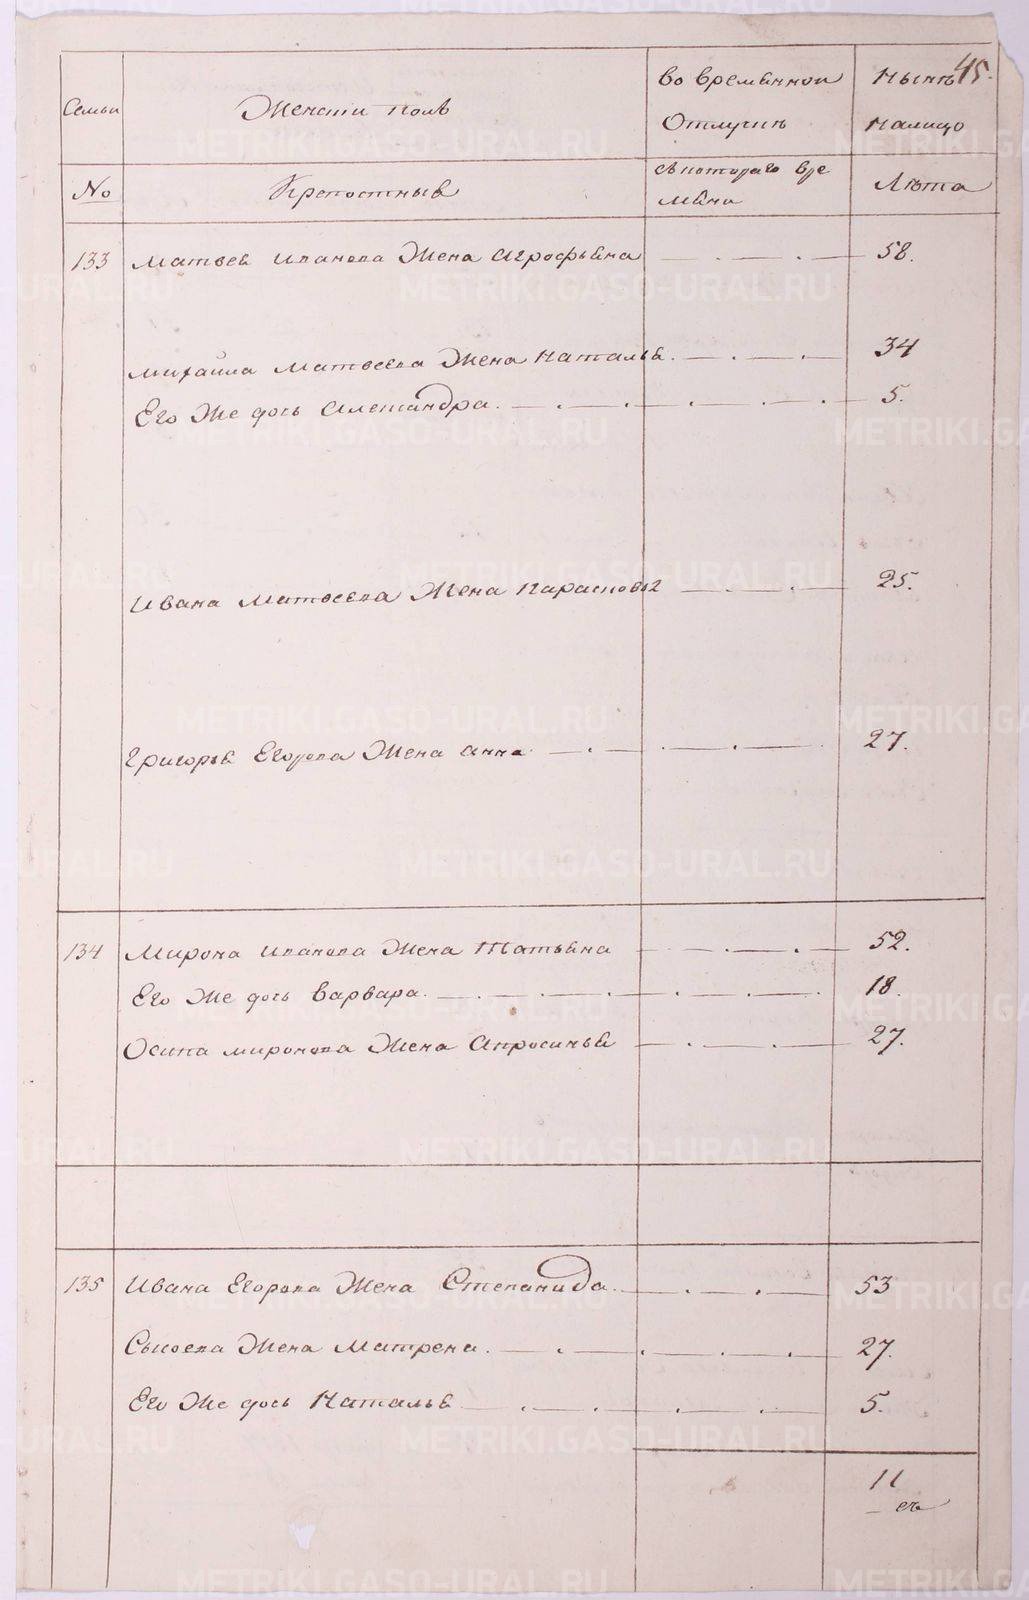 45.
Семьи Женски полъ во времѣнной Нынѣ
Отлучке налицо
№ Крепостныѣ съ котораго вре Лѣта
мѣни
133 Матвѣя Иванова Жена Агрофѣна 58.
Михайла Матвеева Жена Наталья. 34
Его Же дочь Александра. 5.
Ивана Матвеева Жена Парасковья 25.
Григорья Егорова Жена Анна 27.
134 Мирона Иванова Жена Татьяна 52.
Его Же дочь Варвара. 18.
Осипа Миронова Жена Апросинья 27.
135 Ивана Егорова Жена Степанида. 53
Сысоева Жена Матрена. 27.
Его Же дочь Наталья 5.
11
METRIKI.GASO-URAL.RU